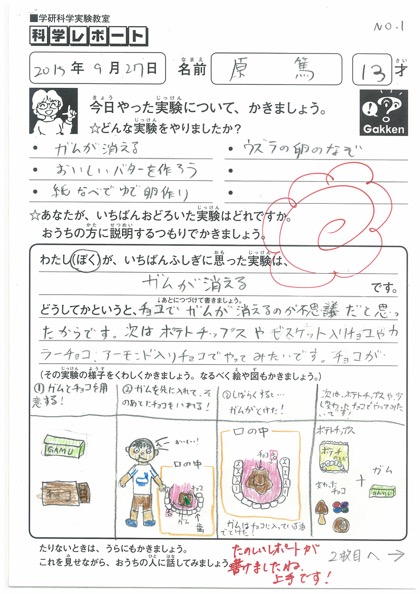 ■学研科学実験教室
NO.1
科学レポート
2015年9月27日 名前 原 篤 13才
今日やった実験について、かきましょう。
☆どんな実験をやりましたか?
Gakken
・ガムが消える
・ウズラの卵のなぞ
・おいしいバターを作ろう
・紙なべでゆで卵作り
☆あなたが、いちばんおどろいた実験はどれですか。
おうちの方に説明するつもりでかきましょう。
わたし(ぼく)が、いちばんふしぎに思った実験は、
ガムが消える です。
↓あとにつづけて書きましょう。
どうしてかというと、チョコでガムが消えるのが不思議だと思っ
たからです。次はポテトチップスやビスケット入りチョコやカ
ラーチョコ、アーモンド入りチョコでやってみたいです。チョコが
(その実験の様子をくわしくかきましょう。なるべく絵や図もかきましょう。)
①ガムとチョコを用
意する!
②ガムを先に入れて、そ
のあとチョコをいれる!
③しばらくすると…
ガムがとけた!
次は、ポテトチップスや、
チョコでやってみた
いです!
GAMU
おいしい!
口の中
チョコ
ガム
歯
口の中
チョコ
ガムはチョコに入っている油
でとけた!
ポテトチップス
ポテチ
チョコ
+
ガム
GAMU
たりないときは、うらにもかきましょう。
これを見せながら、おうちの人に話してみましょう
たのしいレポートが
書けましたね。
上手です!
2枚目へ→